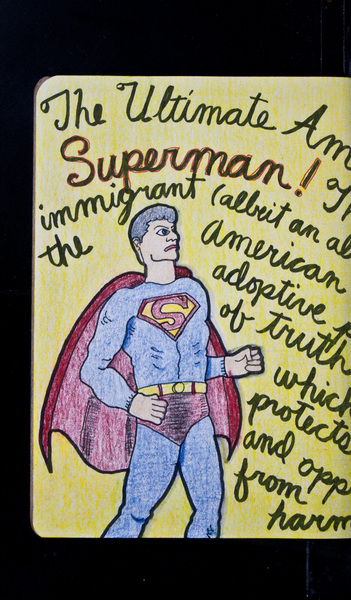 The Ultimate Am
Superman!
immigrant (albeit an al
the American
adoptive
of truth
which
protects
and opp
from
harm
S